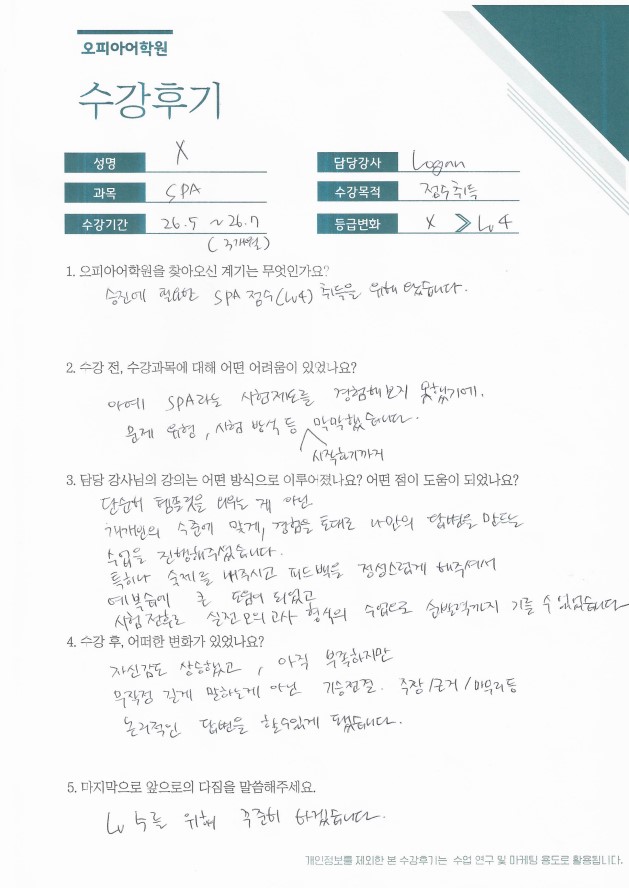 오피아어학원
수강후기
성명 X 담당강사 Logan
과목 SPA 수강목적 점수취득
수강기간 26.5 ~ 26.7 등급변화 X Lv4
(3개월)
1. 오피아어학원을 찾아오신 계기는 무엇인가요?
승진에 필요한 SPA 점수(Lv4) 취득을 위해 왔습니다.
2. 수강 전, 수강과목에 대해 어떤 어려움이 있었나요?
아예 SPA라는 시험제도를 경험해보지 못했기에,
문제 유형, 시험 방식 등 막막했습니다.
시작하기까지
3. 담당 강사님의 강의는 어떤 방식으로 이루어졌나요? 어떤 점이 도움이 되었나요?
단순히 템플릿을 외우는 게 아닌
개개인의 수준에 맞게, 경험을 토대로 나만의 답변을 만드는
수업을 진행해주셨습니다.
특히나 숙제를 내주시고 피드백을 정성스럽게 해주셔서
예복습에 큰 도움이 되었고
시험 전후로 실전 모의고사 형식의 수업으로 순발력까지 기를 수 있었습니다
4. 수강 후, 어떠한 변화가 있었나요?
자신감도 상승했고, 아직 부족하지만
무작정 길게 말하는게 아닌 기승전결. 주장/근거/마무리 등
논리적인 답변을 할수있게 됐습니다.
5. 마지막으로 앞으로의 다짐을 말씀해주세요.
Lv 위해 꾸준히 하겠습니다.
개인정보를 제외한 본 수강후기는 수업 연구 및 마케팅 용도로 활용됩니다.